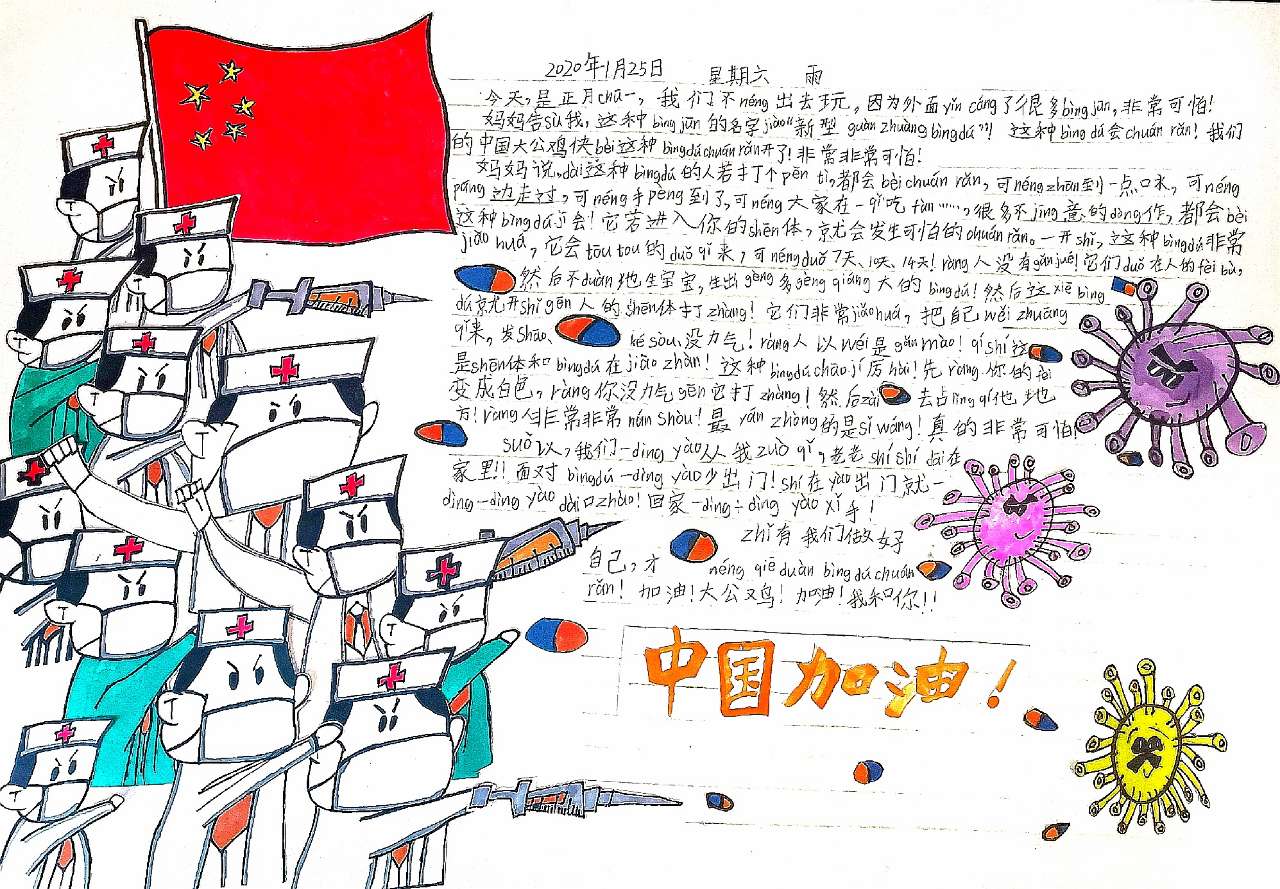 2020年1月25日 星期六 雨
今天,是正月chū一,我们不néng出去玩,因为外面yǐn cáng了很多bìng jūn,非常可怕!
妈妈告sù我,这种bìng jūn的名字jiào“新型guàn zhuàng bìng dú”!这种bìng dú会chuán rǎn!我们
的中国大公鸡快bèi这种bìng dú chuán rǎn开了!非常非常可怕!
妈妈说,dài这种bìng dú的人若打个pēn tì,都会bèi chuán rǎn,可néng zhān到一点口水,可néng
páng边走过,可néng手pèng到了,可néng大家在一qǐ吃fàn……,很多不jīng意的dòng作,都会bèi
这种bìng dú jī会!它若进入你的shēn体,就会发生可怕的chuán rǎn。一开shǐ,这种bìng dú非常
jiǎo huá,它会tōu tōu的duǒ qǐ来,可néng duǒ 7天、10天、14天!ràng人没有gǎn jué!它们duǒ在人的fèi bù,
然后不duàn地生宝宝,生出gèng多gèng qiáng大的bìng dú!然后这xiē bìng
dú就开shǐ gēn人的shēn体打zhàng!它们非常jiǎo huá,把自己wěi zhuāng
qǐ来,发shāo、ké sòu、没力气!ràng人以wéi是gǎn mào!qí shí这
是shēn体和bìng dú在jiāo zhàn!这种bìng dú chāo jí厉hài!先ràng你的fèi
变成白色,ràng你没力气gēn它打zhàng!然后zài去占lǐng qí他地
方!ràng 非常非常nán shòu!最yán zhòng的是sǐ wáng!真的非常可怕!
suǒ以,我们一dìng yào从我zuò qǐ,老老shí shí dāi在
家里!!面对bìng dú一dìng yào少出门!shí在yào出门就一
dìng一dìng yào dài口zhào!回家一dìng一dìng yào xǐ手!
zhǐ有我们做好
自己,才néng qiē duàn bìng dú chuán
rǎn!加油!大公鸡!加油!我和你!!
中国加油!